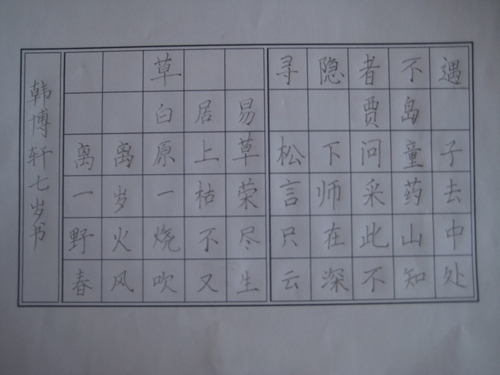 草
白居易
离离原上草
一岁一枯荣
野火烧不尽
春风吹又生
寻隐者不遇
贾岛
松下问童子
言师采药去
只在此山中
云深不知处
韩博轩七岁书